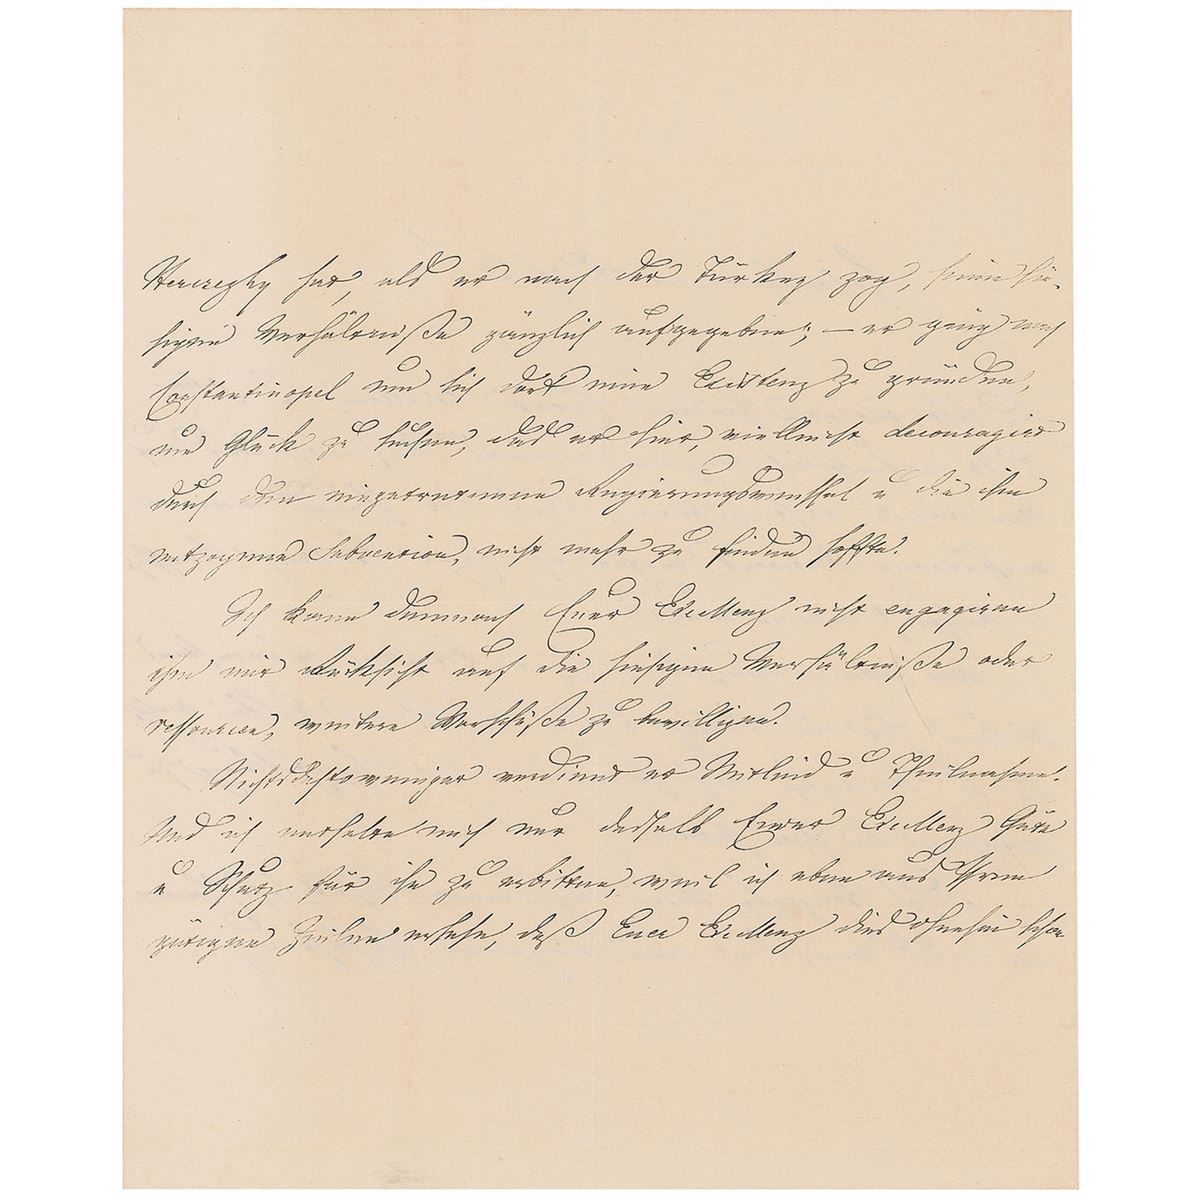 Herczeghy hat, als er nach der Türkey zog, seine hie-
sigen Verhältniße gänzlich aufgegeben; – er ging nach
Constantinopel um sich dort eine Existenz zu gründen,
ein Glück zu suchen, daß er hier, vielleicht decouragirt
durch den eingetretenen Regierungswechsel u die ihm
entzogene Subvention, nicht mehr zu finden hoffte.
Ich kann demnach Euer Excellenz nicht engagiren
ihm mit Rücksicht auf die hiesigen Verhältniße oder
ressourcen, weitere Vorschüße zu bewilligen.
Nichtsdestoweniger verdient er Mitleid u Theilnahme.
Und ich enthalte mich nur deshalb Euer Excellenz Güte
u Schutz für ihn zu erbitten, weil ich eben aus Ihren
gütigen Zeilen ersehe, daß Euer Excellenz dies ohnehin schon